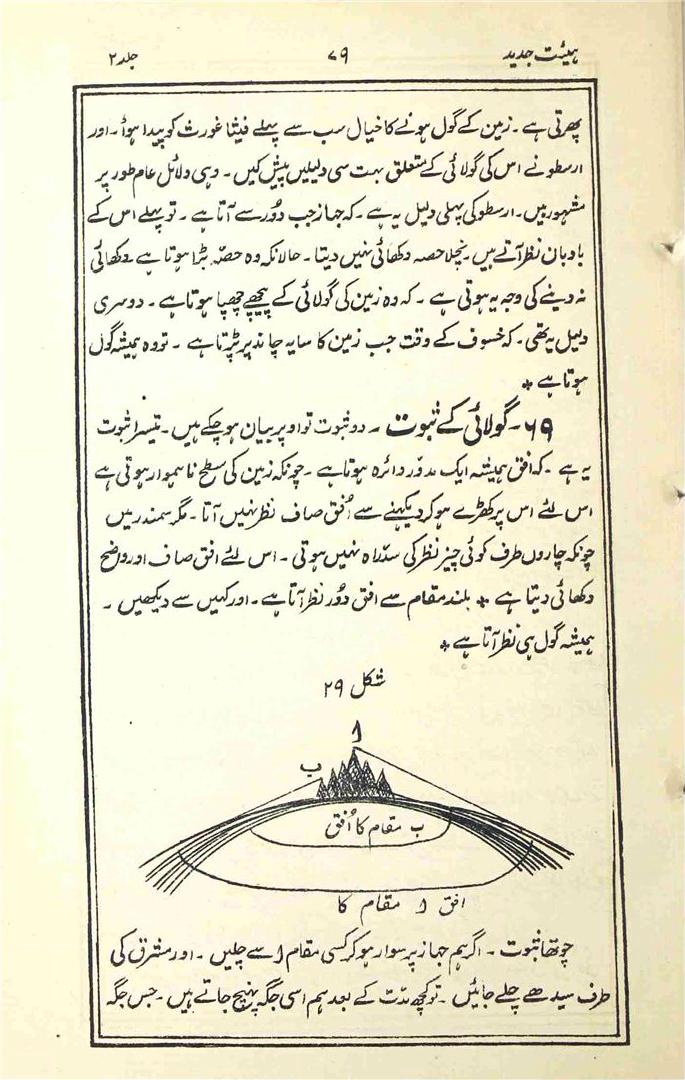 ہیئت جدید ۷۹ جلد ۲
پھرتی ہے۔ زمین کے گول ہونے کا خیال سب سے پہلے فیثاغورث کو پیدا ہوا۔ اور
ارسطو نے اس کی گولائی کے متعلق بہت سی دلیلیں پیش کیں۔ وہی دلائل عام طور پر
مشہور ہیں۔ ارسطو کی پہلی دلیل یہ ہے۔ کہ جہاز جب دُور سے آتا ہے۔ تو پہلے اس کے
بادبان نظر آتے ہیں۔ نچلا حصہ دکھائی نہیں دیتا۔ حالانکہ وہ حصّہ بڑا ہوتا ہے۔ دکھائی
نہ دینے کی وجہ یہ ہوتی ہے۔ کہ وہ زمین کی گولائی کے پیچھے چھپا ہوتا ہے۔ دوسری
دلیل یہ تھی۔ کہ خسوف کے وقت جب زمین کا سایہ چاند پر پڑتا ہے۔ تو وہ ہمیشہ گول
ہوتا ہے *
۶۹۔ گولائی کے ثبوت۔ دو ثبوت تو اوپر بیان ہو چکے ہیں۔ تیسرا ثبوت
یہ ہے۔ کہ افق ہمیشہ ایک مدوّر دائرہ ہوتا ہے۔ چونکہ زمین کی سطح ناہموار ہوتی ہے
اس لئے اس پر کھڑے ہو کر دیکھنے سے اُفق صاف نظر نہیں آتا۔ مگر سمندر میں
چونکہ چاروں طرف کوئی چیز نظر کی سدّراہ نہیں ہوتی۔ اس لئے افق صاف اور واضح
دکھائی دیتا ہے * بلند مقام سے افق دُور نظر آتا ہے۔ اور کہیں سے دیکھیں۔
ہمیشہ گول ہی نظر آتا ہے *
شکل ۲۹
ا
ب
ب مقام کا اُفق
افق ا مقام کا
چوتھا ثبوت۔ اگر ہم جہاز پر سوار ہو کر کسی مقام ا سے چلیں۔ اور مشرق کی
طرف سیدھے چلے جائیں۔ تو کچھ مدّت کے بعد ہم اسی جگہ پہنچ جاتے ہیں۔ جس جگہ